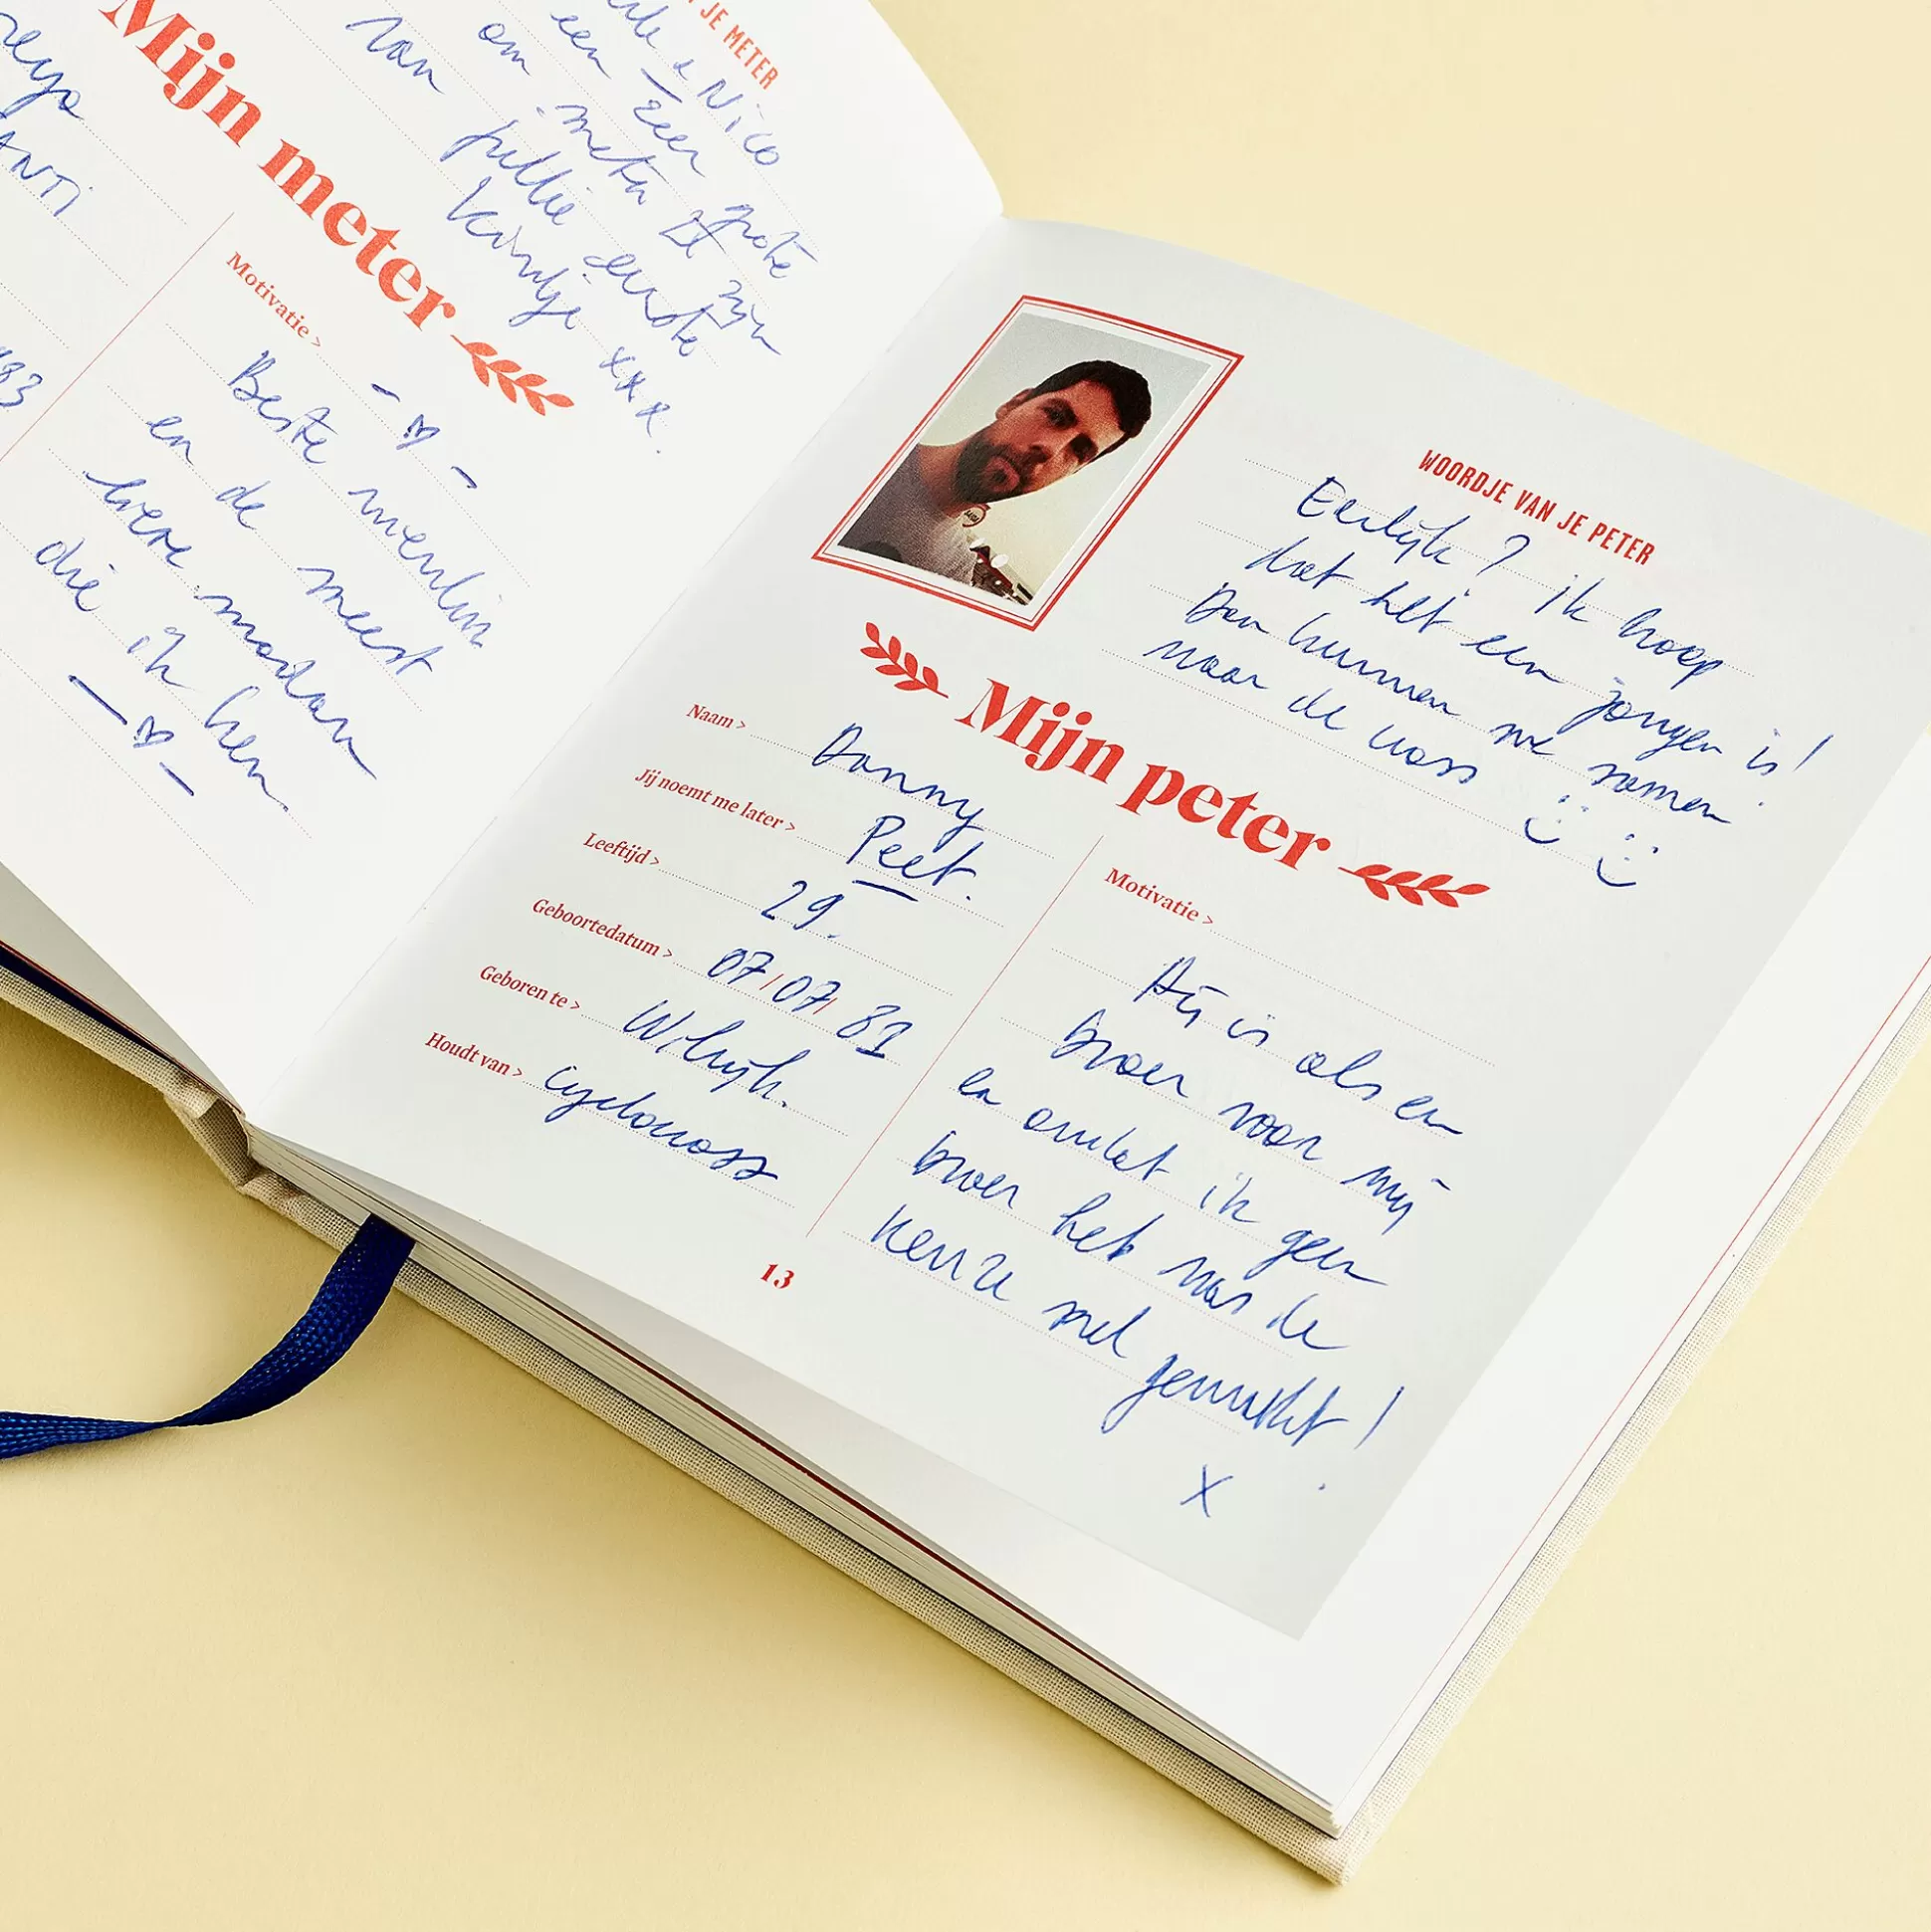 JE METER
& Nico
een zeer grote
om meter te zijn
van jullie eerste
kindje xxx.
Mijn meter
Motivatie >
Beste vriendin
en de meest
lieve madam
die ik ken.
83
WOORDJE VAN JE PETER
Eerlijk? ik hoop
dat het een jongen is!
Dan kunnen we samen
naar de cross
Mijn peter
Naam > Danny
Jij noemt me later > Peet.
Leeftijd > 29.
Geboortedatum > 07/07/81
Geboren te > Wilrijk.
Houdt van > cyclocross
Motivatie >
Hij is als en
broer voor mij
en omdat ik geen
broer heb was de
keuze snel gemaakt!
x
13